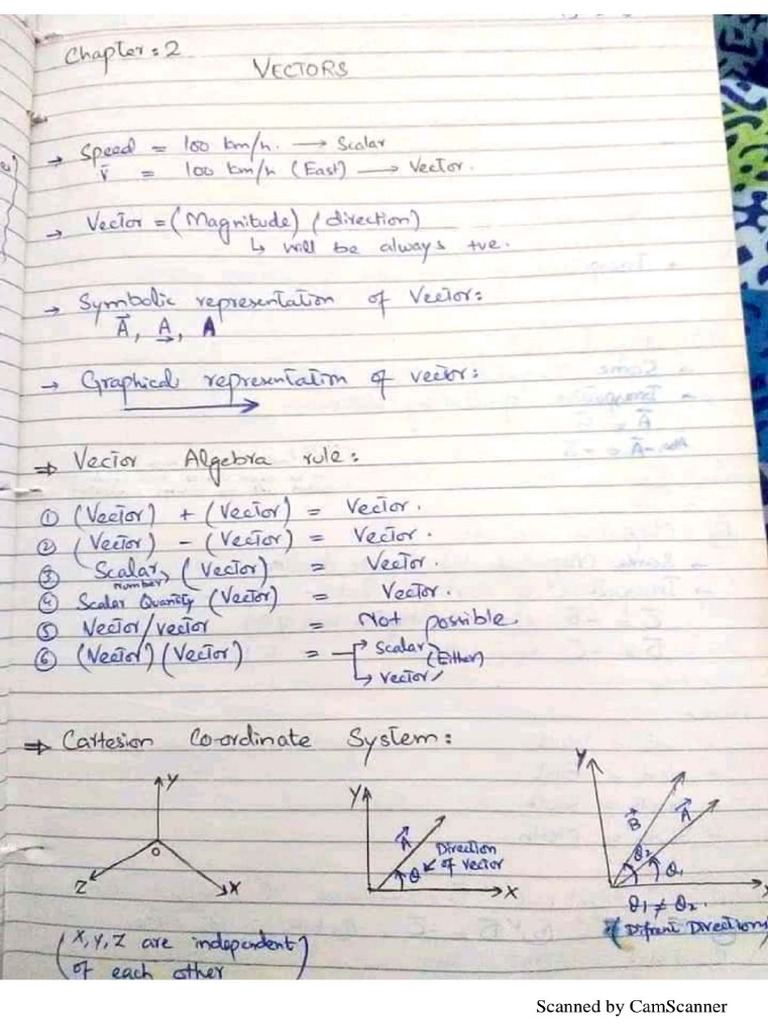 Chapter: 2
VECTORS
→ Speed = 100 km/h. → Scalar
v̄ = 100 km/h (East) → Vector.
→ Vector = (Magnitude) (direction)
↳ will be always +ve.
→ Symbolic representation of Vector:
A⃗, A, A
→ Graphical representation of vector:
⇒ Vector Algebra rule:
① (Vector) + (Vector) = Vector.
② (Vector) - (Vector) = Vector.
③ Scalar, (Vector) = Vector.
number
④ Scalar Quantity (Vector) = Vector.
⑤ Vector/vector = Not possible.
⑥ (Vector) (Vector) = → Scalar
(Either)
↳ vector
⇒ Cartesion Co-ordinate System:
Y
O
Z
X
Y
A⃗
Direction
of vector
θ
X
Y
B⃗
A⃗
θ2
θ1
θ1 ≠ θ2.
(Difrent Directions)
(X, Y, Z are independent)
of each other
Scanned by CamScanner